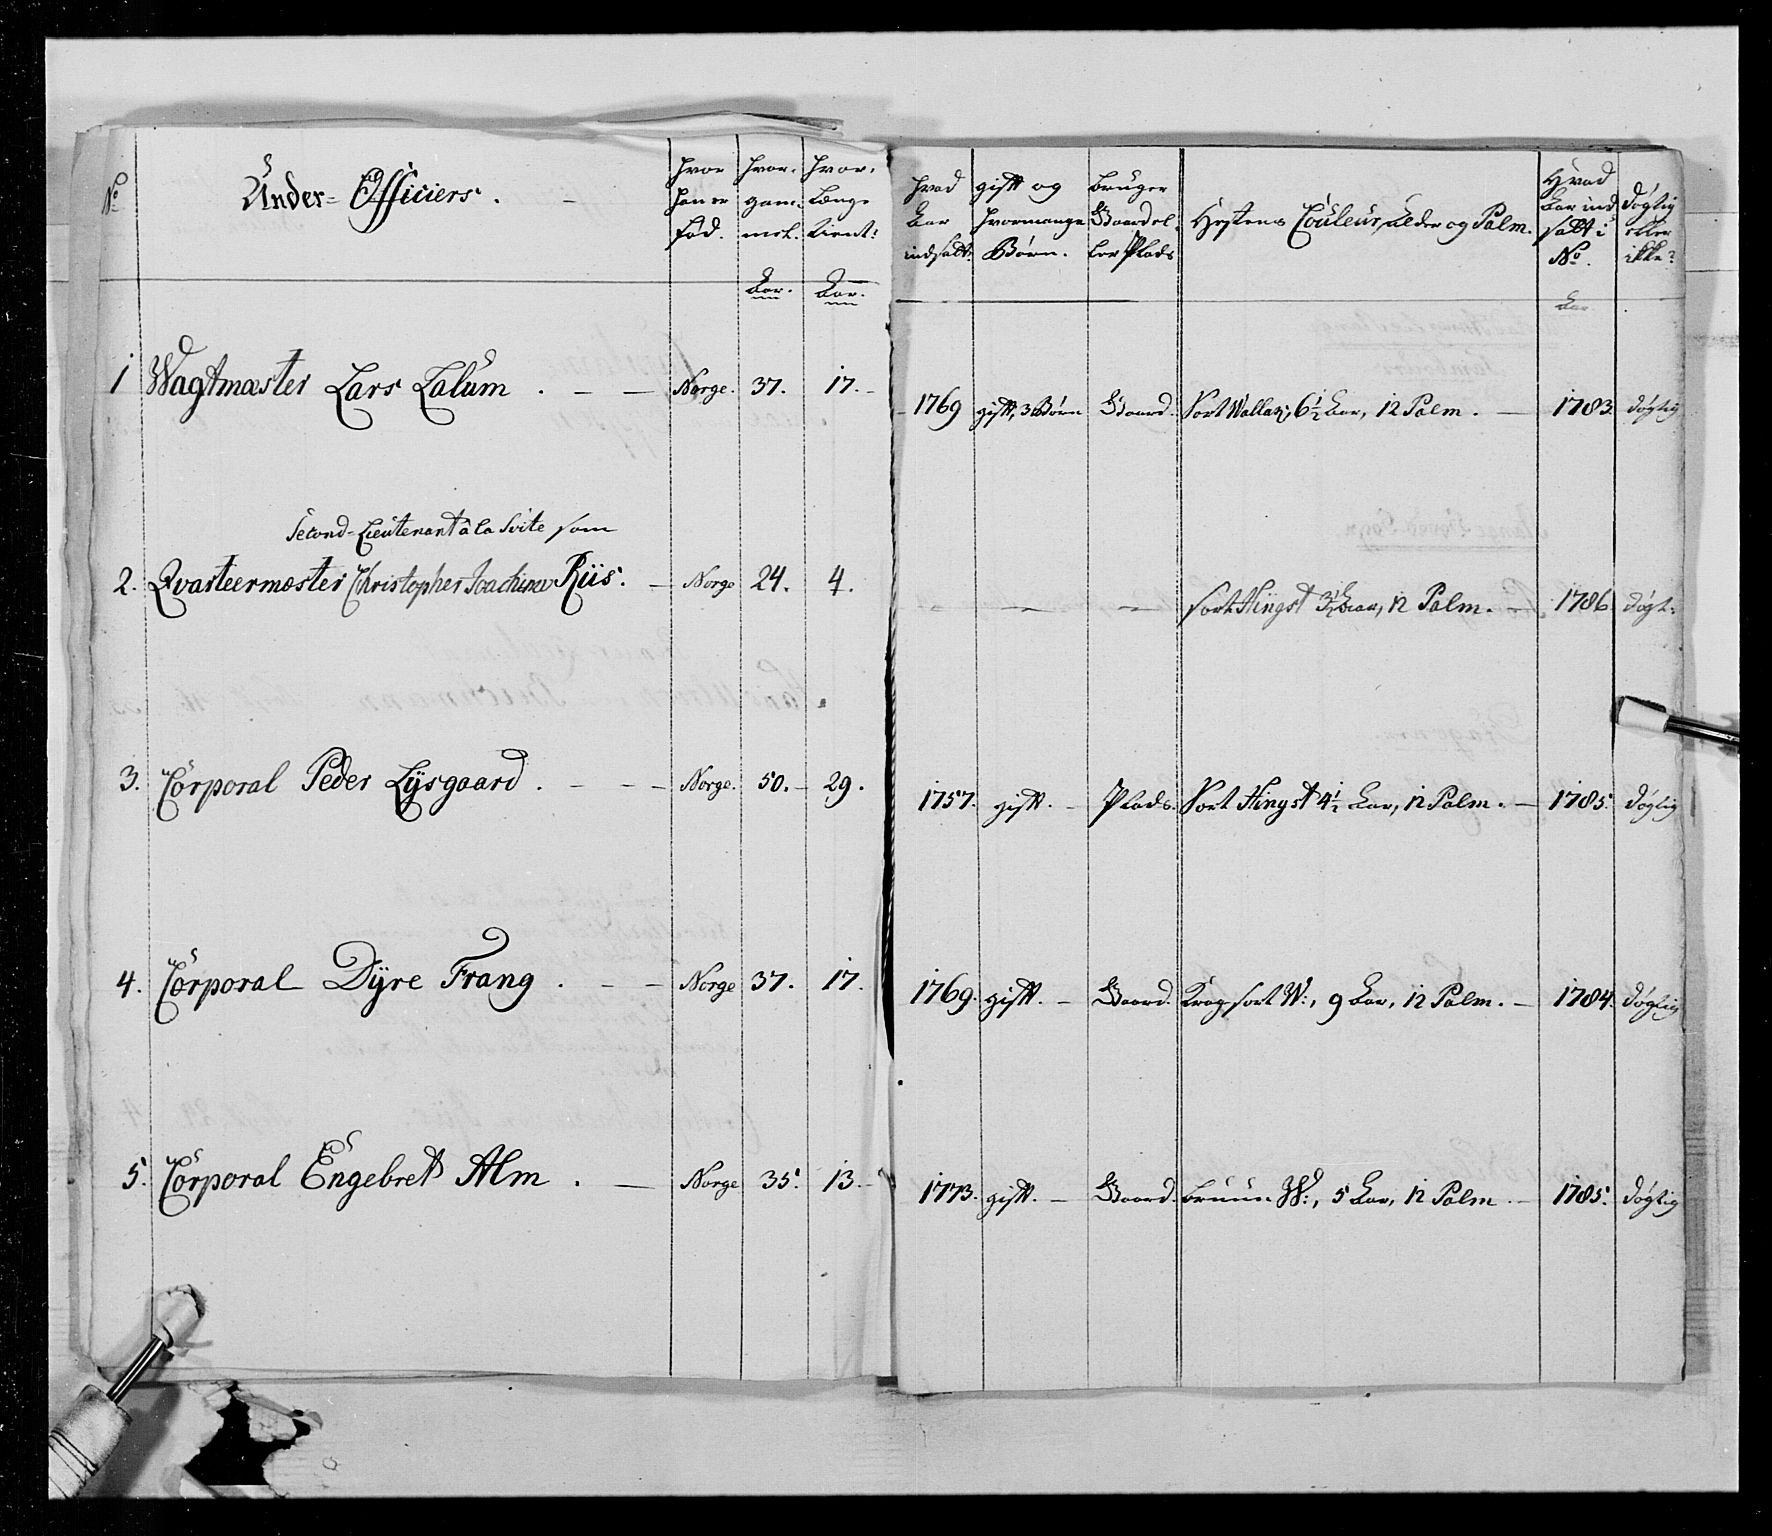 No
Under-Officiers.
hvor han er fød.
hvor gam- mel.
hvor Længe tient:
hvad Aar indsatt:
gift og hvormange Børn.
bruger Gaard eller Plads
Hestens Couleur, Alder og Palm.
Hvad Aar ind satt i No.
døgtig eller ikke?
Aar. Aar. Aar
1 Wagtmæster Lars Lalum . — — Norge. 37. 17. – 1769 gift, 3 Børn Gaard. Sort Wallak, 6½ Aar, 12 Palm. — 1783. døgtig
Second-Lieutenant à la Svite som
2. Qvarteermæster Christopher Joachim Riis. — Norge 24. 4. – — — Sort Hingst 3½ Aar, 12 Palm. – 1786 døgt:
3. Corporal Peder Lÿsgaard . – – – Norge. 50. – 29. 1757. gift. – Plads. Sort Hingst 4½ Aar, 12 Palm. – 1785. døgtig
4. Corporal Dÿre Frang . – – Norge 37. 17. 1769. gift. – Gaard. Kragsort W:, 9 Aar, 12 Palm. – 1784. døgtig
5. Corporal Engebret Alm . — Norge 35. 13. – 1773. gift. – Gaard. bruun W:, 5 Aar, 12 Palm – 1785. døgtig